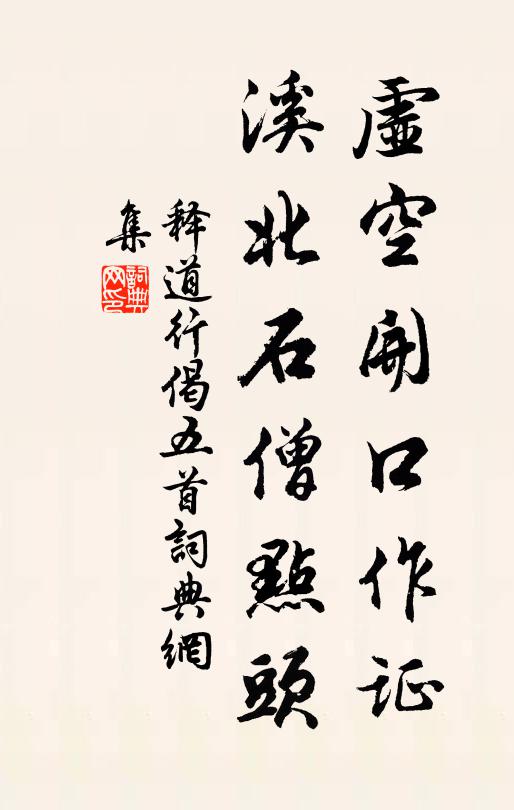 虛空開口作证
溪北石僧點頭
释道行偈五首詞典網
集
詞典
网印